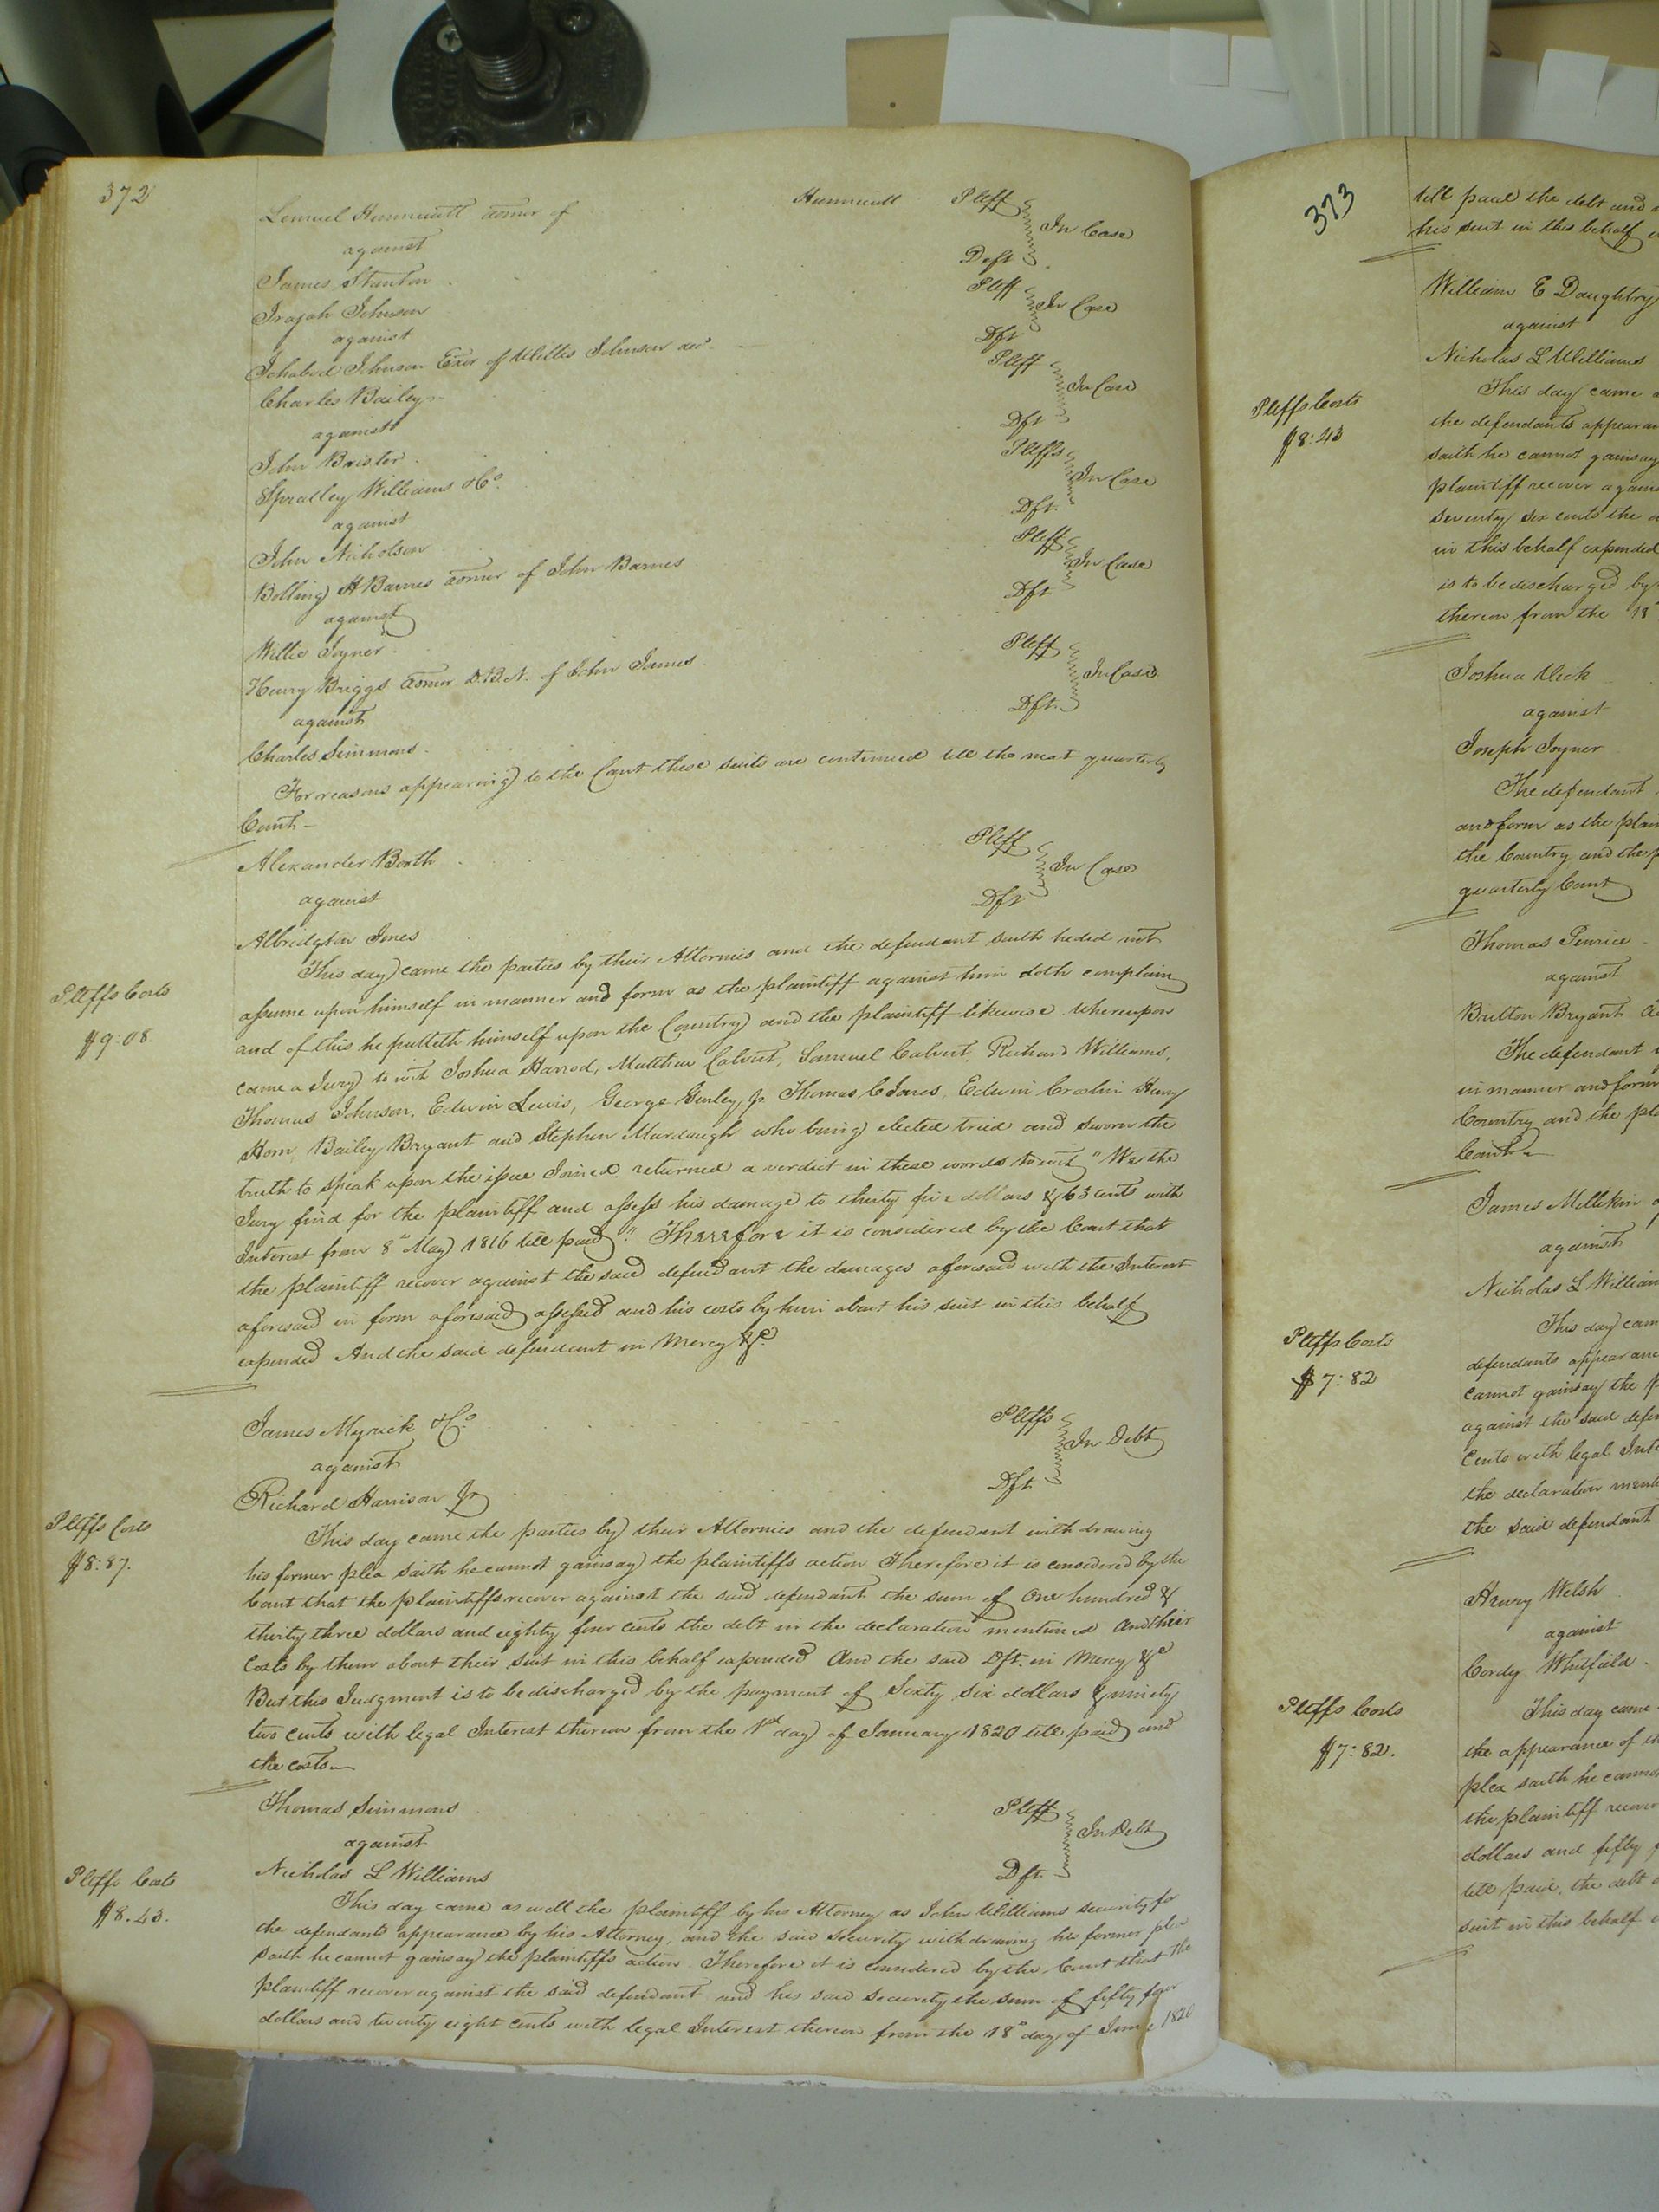 372
Lemuel Hunnicutt admr of Hunnicutt Pltff
against In Case
James Stanton Deft
Irajah Johnson Pltff
against In Case
Ichabod Johnson Exor of Willis Johnson decd Dft
Charles Bailey Pltff
against In Case
John Brister Dft
Spratley Williams & Co. Pltffs
against In Case
John Nicholson Dft.
Bolling H Barnes admr of John Barnes Pltff
against In Case
Willie Joyner Dft
Henry Briggs admr D.B.N. of John James Pltff
against In Case
Charles Simmons Dft.
For reasons appearing to the Court these suits are continued till the next quarterly
Court
Alexander Booth Pltff
against In Case
Albridgton Jones Dft
Pltffs Costs
$9:08
This day came the parties by their Attornies and the defendant saith he did not
assume upon himself in manner and form as the plaintiff against him doth complain
and of this he putteth himself upon the Country and the plaintiff likewise whereupon
came a Jury to wit Joshua Harrod, Matthew Calvert, Samuel Calvert, Richard Williams,
Thomas Johnson, Edwin Lewis, George Gurley, Jr Thomas C Jones, Edwin Croslin Henry
Horn, Bailey Bryant and Stephen Murdaugh who being elected tried and sworn the
truth to speak upon the issue Joined returned a verdict in these words to wit "We the
Jury find for the plaintiff and assess his damage to thirty five dollars & 63 cents with
Interest from 8th May 1816 till paid" Therefore it is considered by the Court that
the plaintiff recover against the said defendant the damages aforesaid with the Interest
aforesaid in form aforesaid assessed and his costs by him about his suit in this behalf
expended And the said defendant in Mercy &c.
James Myrick & Co. Pltffs
against In Debt
Richard Harrison Jr Dft
Pltffs Costs
$8:87.
This day came the parties by their Attornies and the defendant withdrawing
his former plea saith he cannot gainsay the plaintiffs action Therefore it is considered by the
Court that the plaintiffs recover against the said defendant the sum of One hundred &
thirty three dollars and eighty four cents the debt in the declaration mentioned And their
Costs by them about their suit in this behalf expended And the said Dft. in Mercy &c
But this Judgment is to be discharged by the payment of Sixty six dollars & ninety
two cents with legal Interest thereon from the 1st day of January 1820 till paid and
the costs
Thomas Simmons Pltff
against In Debt
Nicholas L Williams Dft.
Pltffs Costs
$8.43.
This day came as well the plaintiff by his Attorney as John Williams security for
the defendants appearance by his Attorney, and the said security withdrawing his former plea
saith he cannot gainsay the plaintiffs action Therefore it is considered by the Court that the
plaintiff recover against the said defendant and his said security the sum of fifty four
dollars and twenty eight cents with legal Interest thereon from the 18th day of June 1820
373
till paid the debt and
his suit in this behalf
William E Daughtry
against
Nicholas L Williams
Pltffs Costs
$8:43
This day came
the defendants appearan
saith he cannot gainsay
plaintiff recover again
Seventy six cents the
in this behalf expended
is to be discharged by
thereon from the 18
Joshua Vick
against
Joseph Joyner
The defendant
and form as the plai
the Country and the
quarterly Court
Thomas Penrice
against
Britton Bryant
The defendant
in manner and form
Country and the pla
Court
James Millikin
against
Nicholas L William
Pltffs Costs
$7:82
This day cam
defendants appearan
cannot gainsay the p
against the said defen
Cents with legal Int
the declaration ment
the said defendant
Henry Welsh
against
Cordy Whitfield
Pltffs Costs
$7:82.
This day came
the appearance of
plea saith he canno
the plaintiff recover
dollars and fifty
till paid, the debt
suit in this behalf